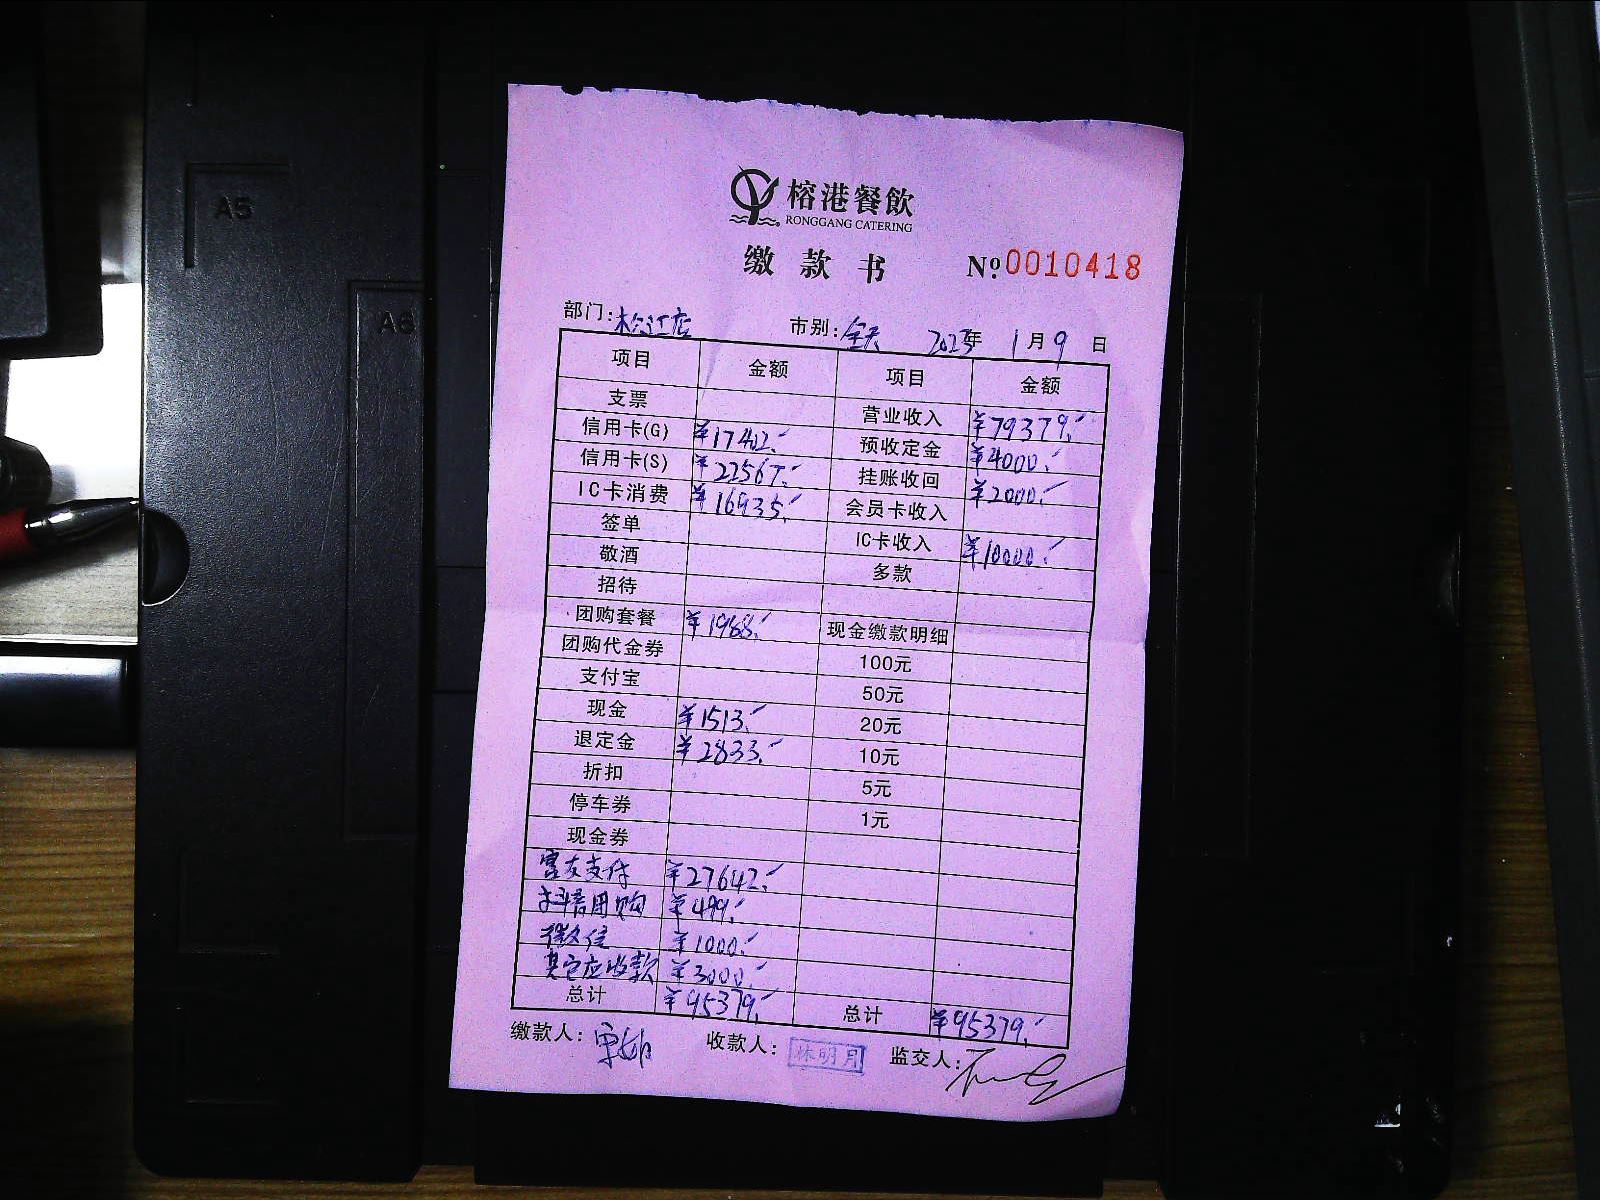 A5
A6
榕港餐飲
RONGGANG CATERING
缴款书 №0010418
部门:松江店 市别:全天 2025年1月9日
项目 金额 项目 金额
支票 营业收入 ¥79379.-
信用卡(G) ¥17402.- 预收定金 ¥4000.-
信用卡(S) ¥22567.- 挂账收回 ¥2000.-
IC卡消费 ¥16935.- 会员卡收入
签单 IC卡收入 ¥10000.-
敬酒 多款
招待
团购套餐 ¥1988.- 现金缴款明细
团购代金券 100元
支付宝 50元
现金 ¥1513.- 20元
退定金 ¥2833.- 10元
折扣 5元
停车券 1元
现金券
富友支付 ¥27642.-
抖音团购 ¥499.-
微信 ¥1000.-
其它应收款 ¥3000.-
总计 ¥95379.- 总计 ¥95379.-
缴款人: 收款人:林明月 监交人: